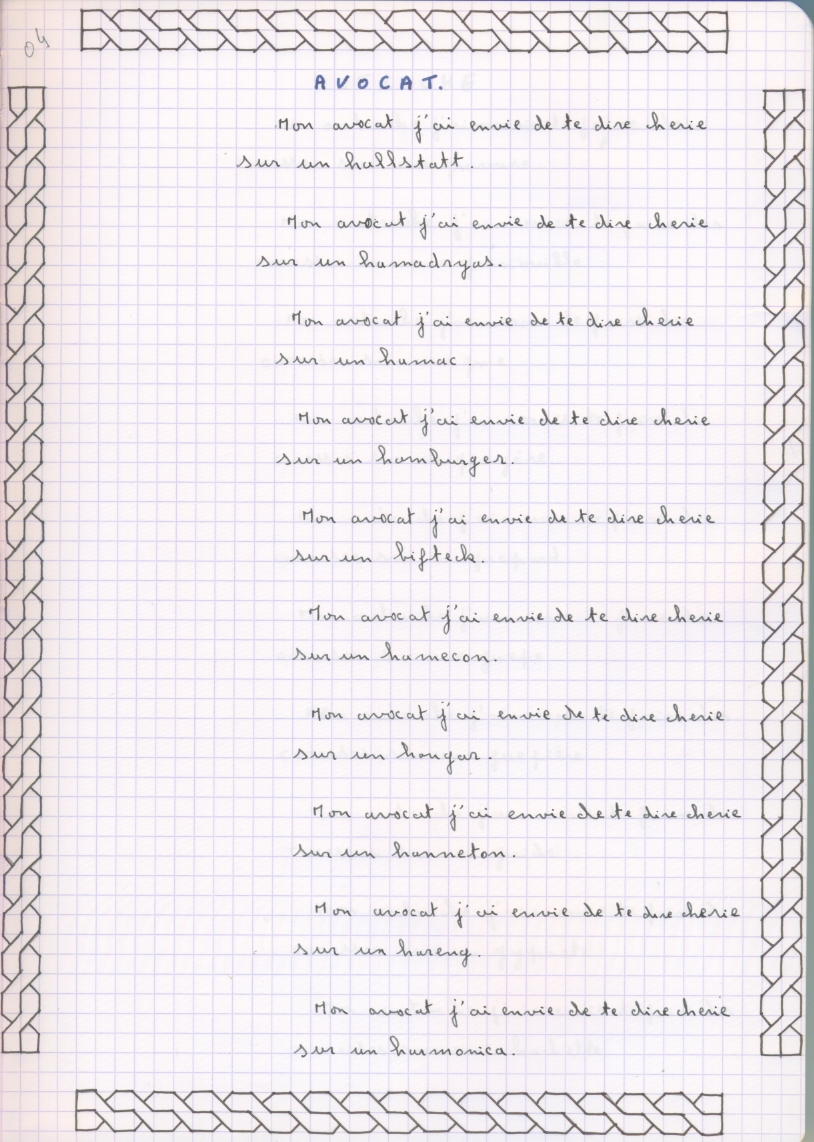 04
AVOCAT.
Mon avocat j'ai envie de te dire cherie
sur un hallstatt.
Mon avocat j'ai envie de te dire cherie
sur un hamadryas.
Mon avocat j'ai envie de te dire cherie
sur un hamac.
Mon avocat j'ai envie de te dire cherie
sur un hamburger.
Mon avocat j'ai envie de te dire cherie
sur un bifteck.
Mon avocat j'ai envie de te dire cherie
sur un hamecon.
Mon avocat j'ai envie de te dire cherie
sur un hangar.
Mon avocat j'ai envie de te dire cherie
sur un hanneton.
Mon avocat j'ai envie de te dire cherie
sur un hareng.
Mon avocat j'ai envie de te dire cherie
sur un harmonica.